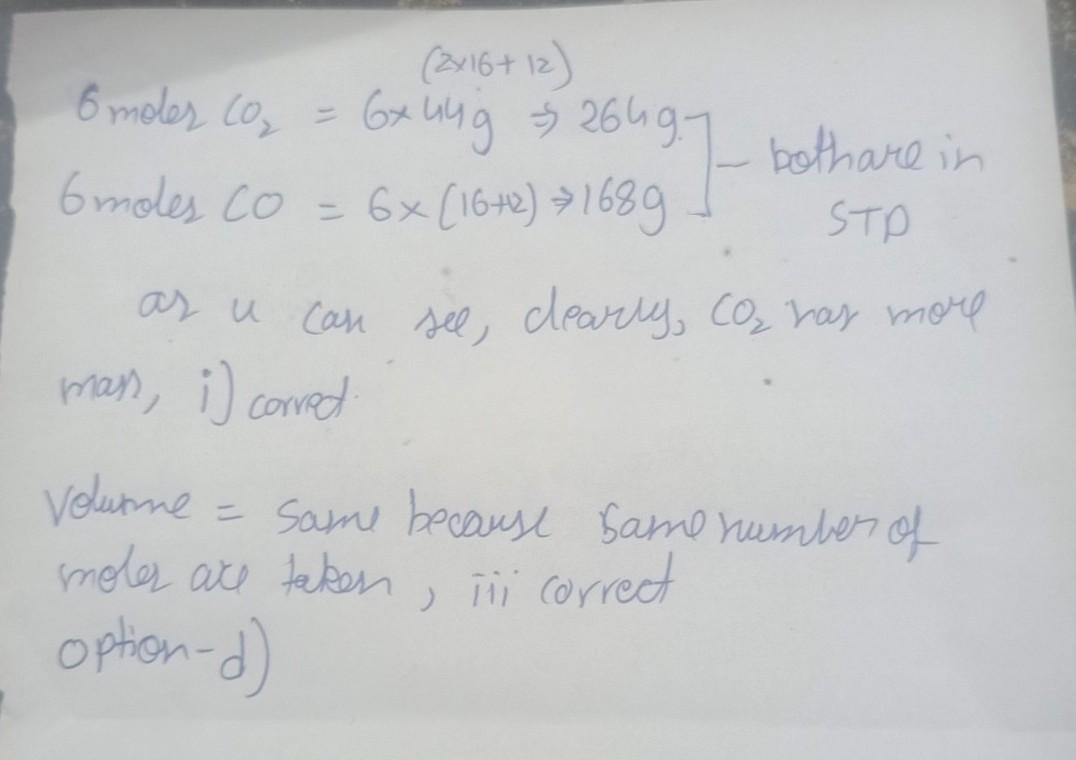 (2x16+12)
6 moles CO₂ = 6x44g ⇒ 264g.
6 moles CO = 6x(16+12) ⇒ 168g
] - both are in
STP
as u can see, clearly, CO₂ has more
mass, i) correct.
Volume = same because same number of
moles are taken, iii correct
option-d)